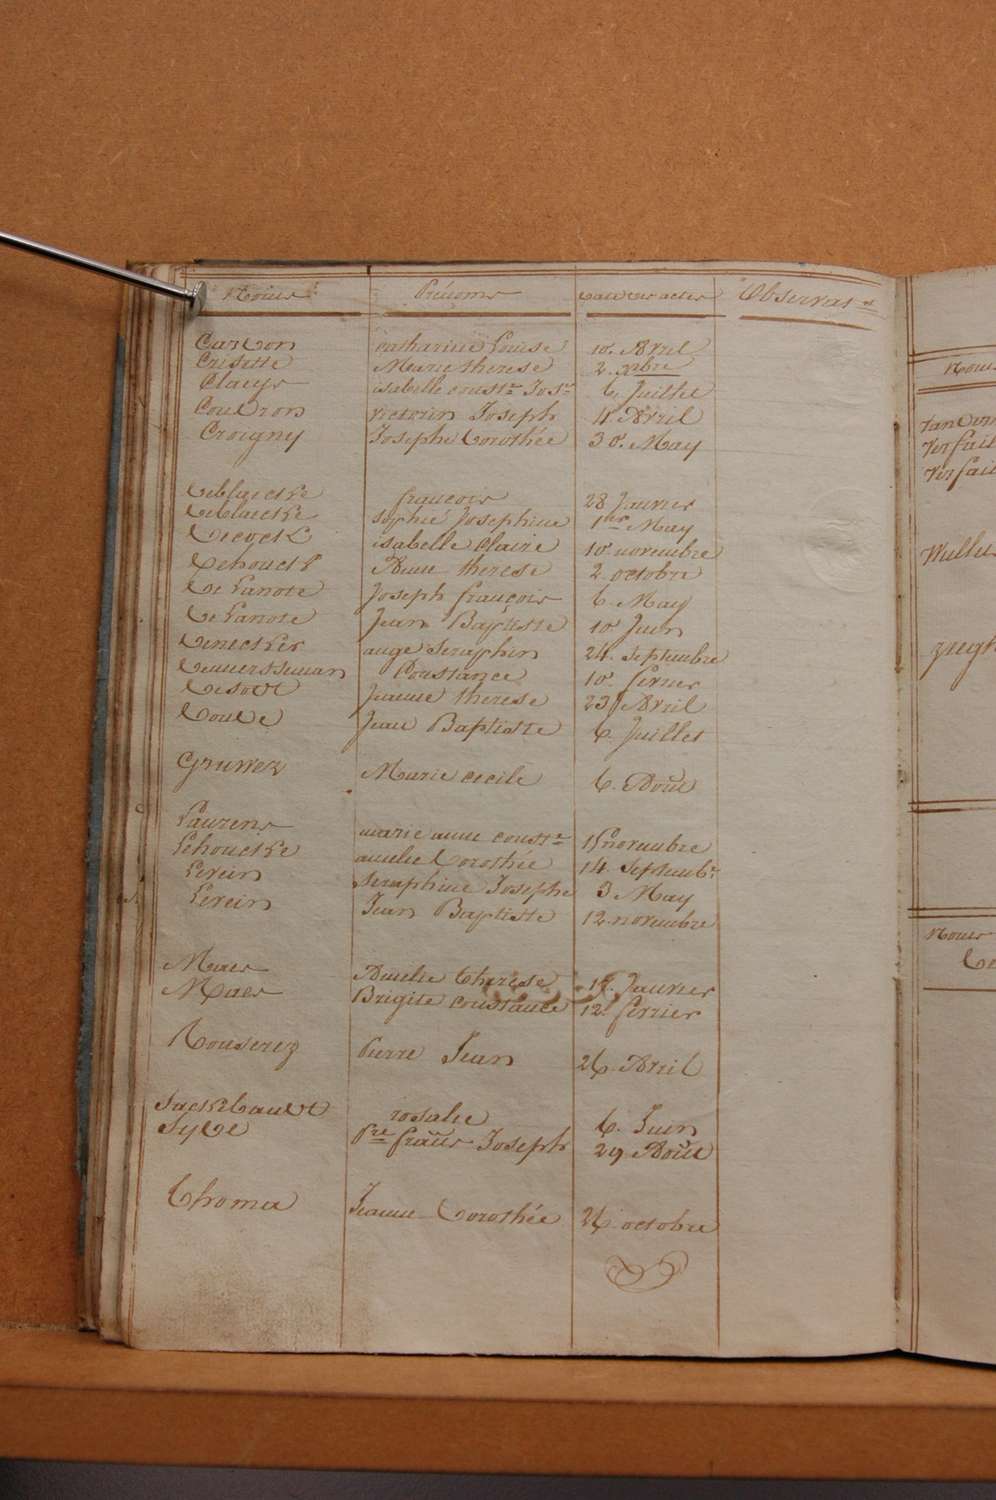 Noms Prénoms Date des actes Observat.s
Cardon catharine Louise 10. Avril
Crisette Marie therese 2. xbre
Claeys isabelle const.e Jos.e 6 Juillet
Coudron victorin Joseph 4. Avril
Croigny Josephe Dorothée 30. May
Deblaecke francois 28 Janvier
Deblaecke sophie Josephine 1er May
Decock isabelle Claire 10 novembre
Dehouck Anne therese 2. octobre
De Lanote Joseph françois 6. May
De Lanote Jean Baptiste 10 Juin
Denecker ange seraphin 24. septembre
Constance 10. fevrier
Jeanne therese 23 Avril
Jean Baptiste 6. Juillet
Gruwez Marie cecile 6. Août
Laurens marie anne const.e 15 novembre
Lehoucke amelie Dorothée 14 septemb.e
Levein seraphine Josephe 3 May
Levein Jean Baptiste 12. novembre
Maes Amelie Therese 17. Janvier
Maes Brigite constance 12. fevrier
Rouserez Pierre Jean 26. Avril
Sackebandt rosalie 6. Juin
Sybe P.re fran.s Joseph 29 Août
Thoma Jeanne Dorothée 26. octobre
Noms
Vandom
Verfail
Verfail
Wullu
ziegh
Noms
De